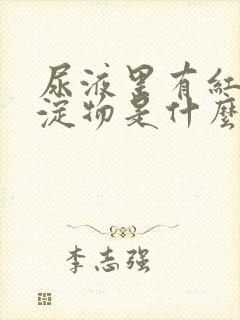 尿液里有红
淀物是什麼
李志强